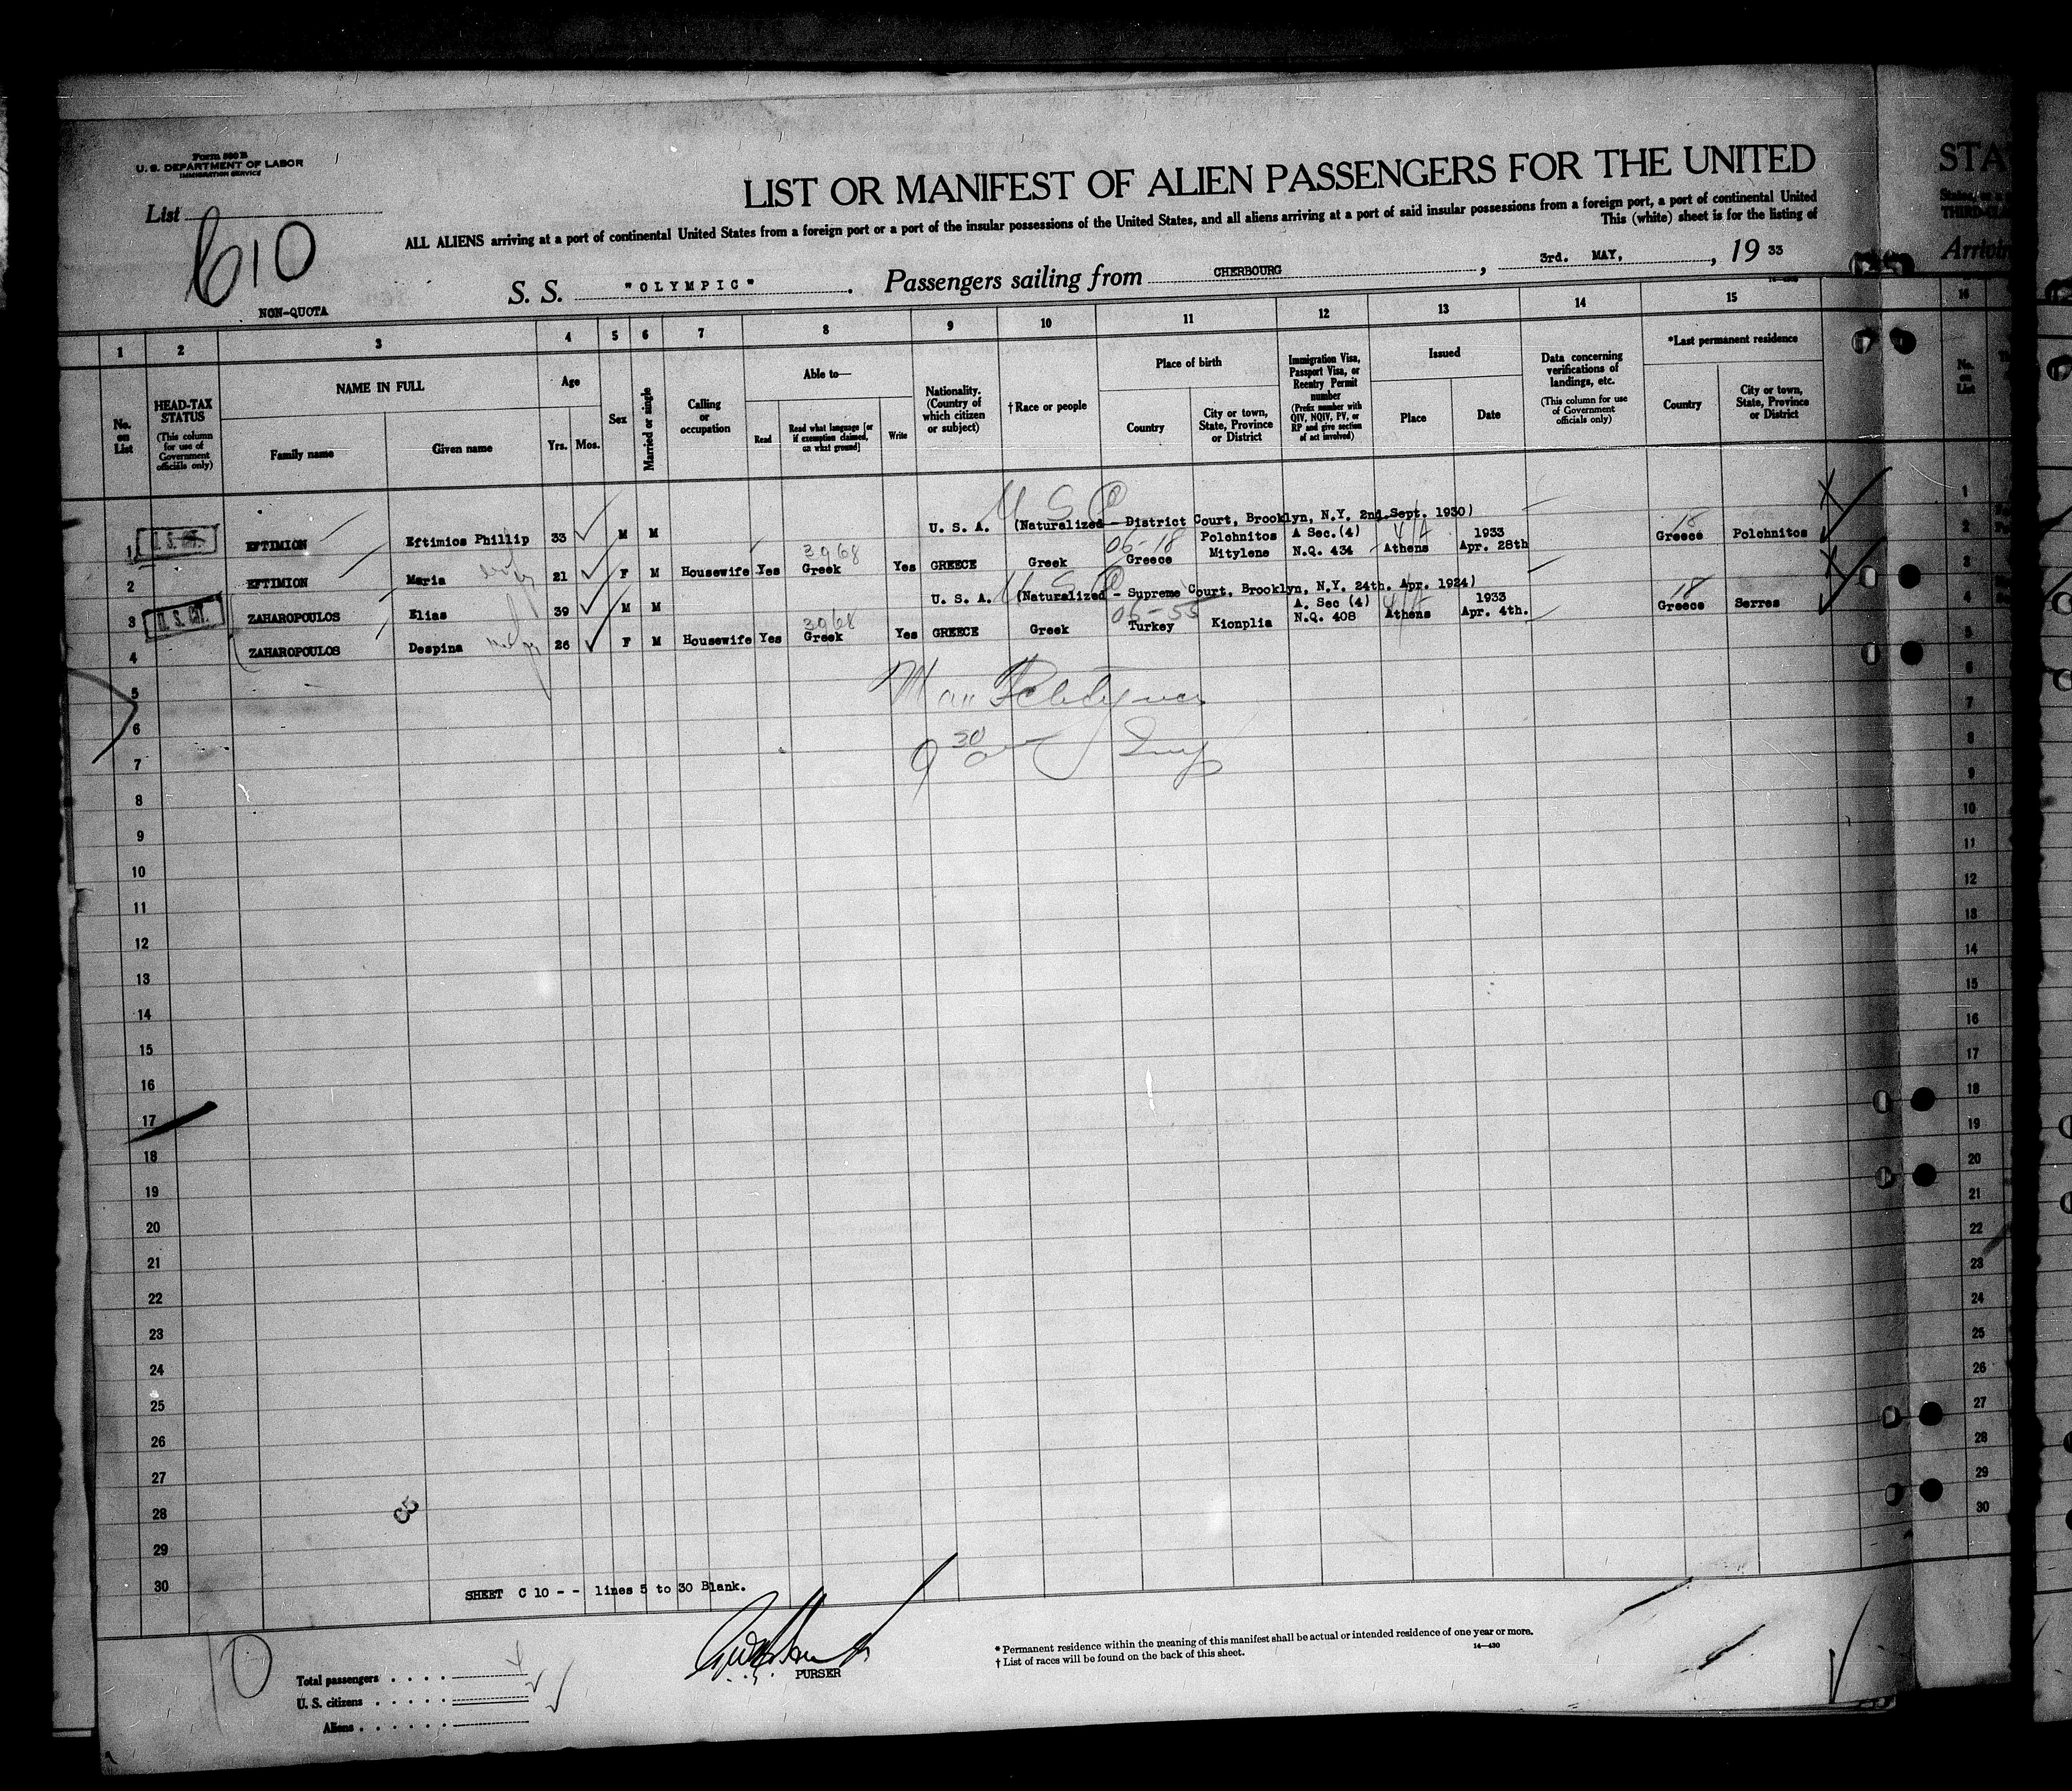 Form 500 B
U. S. DEPARTMENT OF LABOR
IMMIGRATION SERVICE
STA
LIST OR MANIFEST OF ALIEN PASSENGERS FOR THE UNITED
List
C10
ALL ALIENS arriving at a port of continental United States from a foreign port or a port of the insular possessions of the United States, and all aliens arriving at a port of said insular possessions from a foreign port, a port of continental United
This (white) sheet is for the listing of
S. S. "OLYMPIC". Passengers sailing from CHERBOURG, 3rd. MAY, , 19 33
NON-QUOTA
1 2 3 4 5 6 7 8 9 10 11 12 13 14 15 16
No. on List
HEAD-TAX STATUS
(This column for use of Government officials only)
NAME IN FULL
Family name
Given name
Age
Yrs.
Mos.
Sex
Married or single
Calling or occupation
Able to—
Read
Read what language [or if exemption claimed, on what ground]
Write
Nationality. (Country of which citizen or subject)
† Race or people
Place of birth
Country
City or town, State, Province or District
Immigration Visa, Passport Visa, or Reentry Permit number
(Prefix number with QIV, NQIV, PV, or RP and give section of act involved)
Issued
Place
Date
Data concerning verifications of landings, etc.
(This column for use of Government officials only)
*Last permanent residence
Country
City or town, State, Province or District
No. on List
U S C
1 EFTIMION Eftimios Phillip 33 M M U. S. A. (Naturalized – District Court, Brooklyn, N.Y. 2nd.Sept. 1930)
3968 06-18 Polchnitos A Sec.(4) 1933 18 Greece Polchnitos
2 EFTIMION Maria 21 F M Housewife Yes Greek Yes GREECE Greek Greece Mitylene N.Q. 434 Athens Apr. 28th
U S C
3 U. S. CIT. ZAHAROPOULOS Elias 39 M M U. S. A. (Naturalized – Supreme Court, Brooklyn, N.Y. 24th. Apr. 1924)
3968 06-55 A. Sec (4) 1933 18 Greece Serres
4 ZAHAROPOULOS Despina 26 F M Housewife Yes Greek Yes GREECE Greek Turkey Kionplia N.Q. 408 Athens Apr. 4th.
5
6
7
8
9
10
11
12
13
14
15
16
17
18
19
20
21
22
23
24
25
26
27
28
29
30
9 30
SHEET C 10 - - lines 5 to 30 Blank.
10
Total passengers
U. S. citizens
Aliens
PURSER
* Permanent residence within the meaning of this manifest shall be actual or intended residence of one year or more.
† List of races will be found on the back of this sheet.
14—430